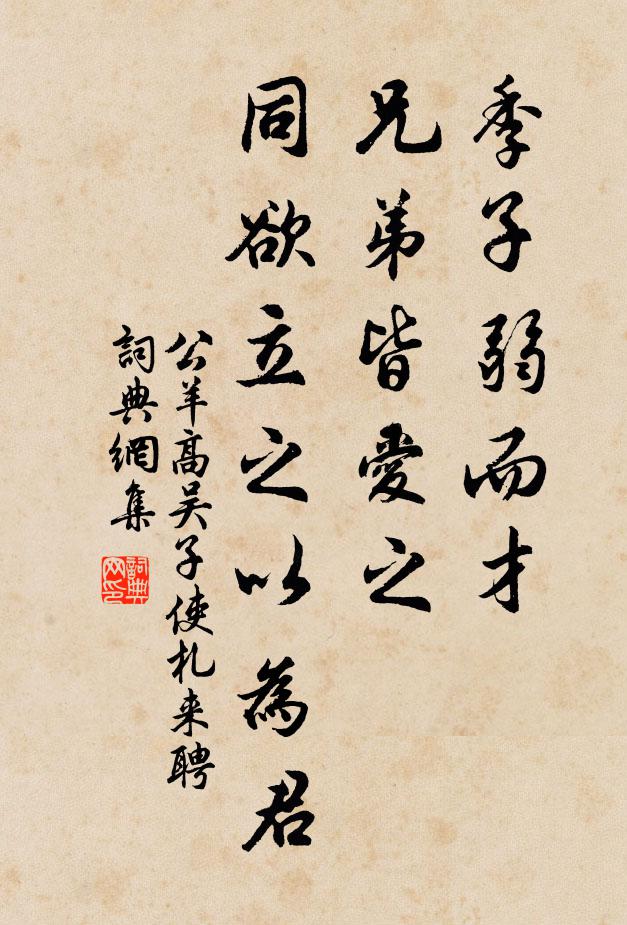 季子弱而才
兄弟皆愛之
同欲立之以為君
公羊高吴子使札来聘
詞典網集
詞典網印